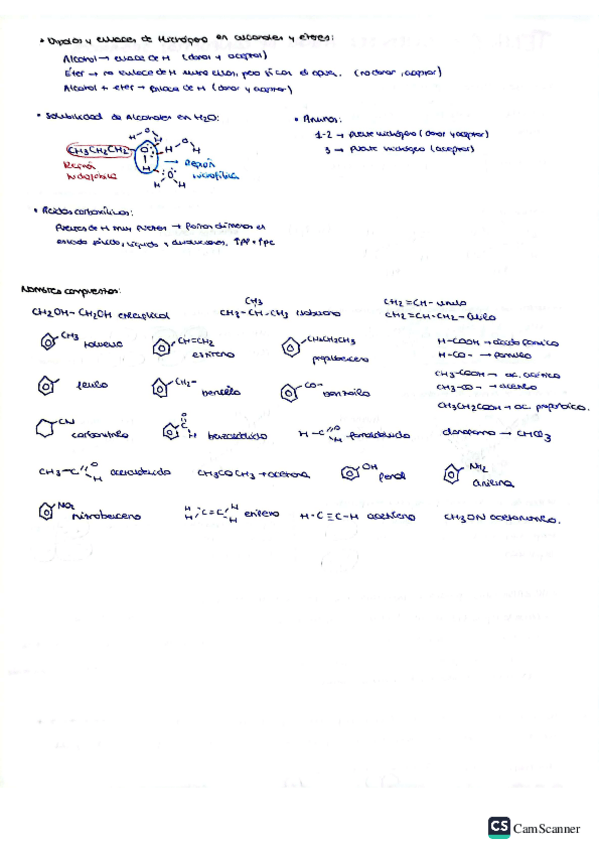 • Dipolos y enlaces de Hidrógeno en alcoholes y éteres:
Alcohol → enlace de H (donor y aceptor)
Éter → no enlace de H entre ellos, pero sí con el agua. (no donor, aceptor)
Alcohol + eter → enlace de H (donor y aceptor)
• Solubilidad de Alcoholes en H2O:
CH3CH2CH2
Región hidrofóbica
Región hidrofílica
• Aminas:
1-2 → puente hidrógeno (donor y aceptor)
3 → puente hidrógeno (aceptor)
• Ácidos carboxílicos:
Puentes de H muy fuertes → forma dímeros en
estado sólido, líquido y disoluciones. ↑PF+↑Pe
Nombres compuestos:
CH2OH-CH2OH etilenglicol
CH3
CH3-CH-CH3 isobutano
CH2=CH- vinilo
CH2=CH-CH2- alilo
CH3 tolueno
CH=CH2 estireno
CH2CH2CH3 propilbenceno
H-COOH → ácido fórmico
H-CO- → formilo
fenilo
CH2- bencilo
CO- benzoilo
CH3-COOH → ac. acético
CH3-CO- → acetilo
CH3CH2COOH → ac. propanoico.
CN carbonitrilo
O
C
H benzaldehído
H-C O H formaldehido
cloroformo → CHCl3
CH3-C O H acetaldehido
CH3COCH3 → acetona
OH fenol
NH2 anilina
NO2 nitrobenceno
H H C=C H H etileno
H-C≡C-H acetileno
CH3CN acetonitrilo.
CS CamScanner